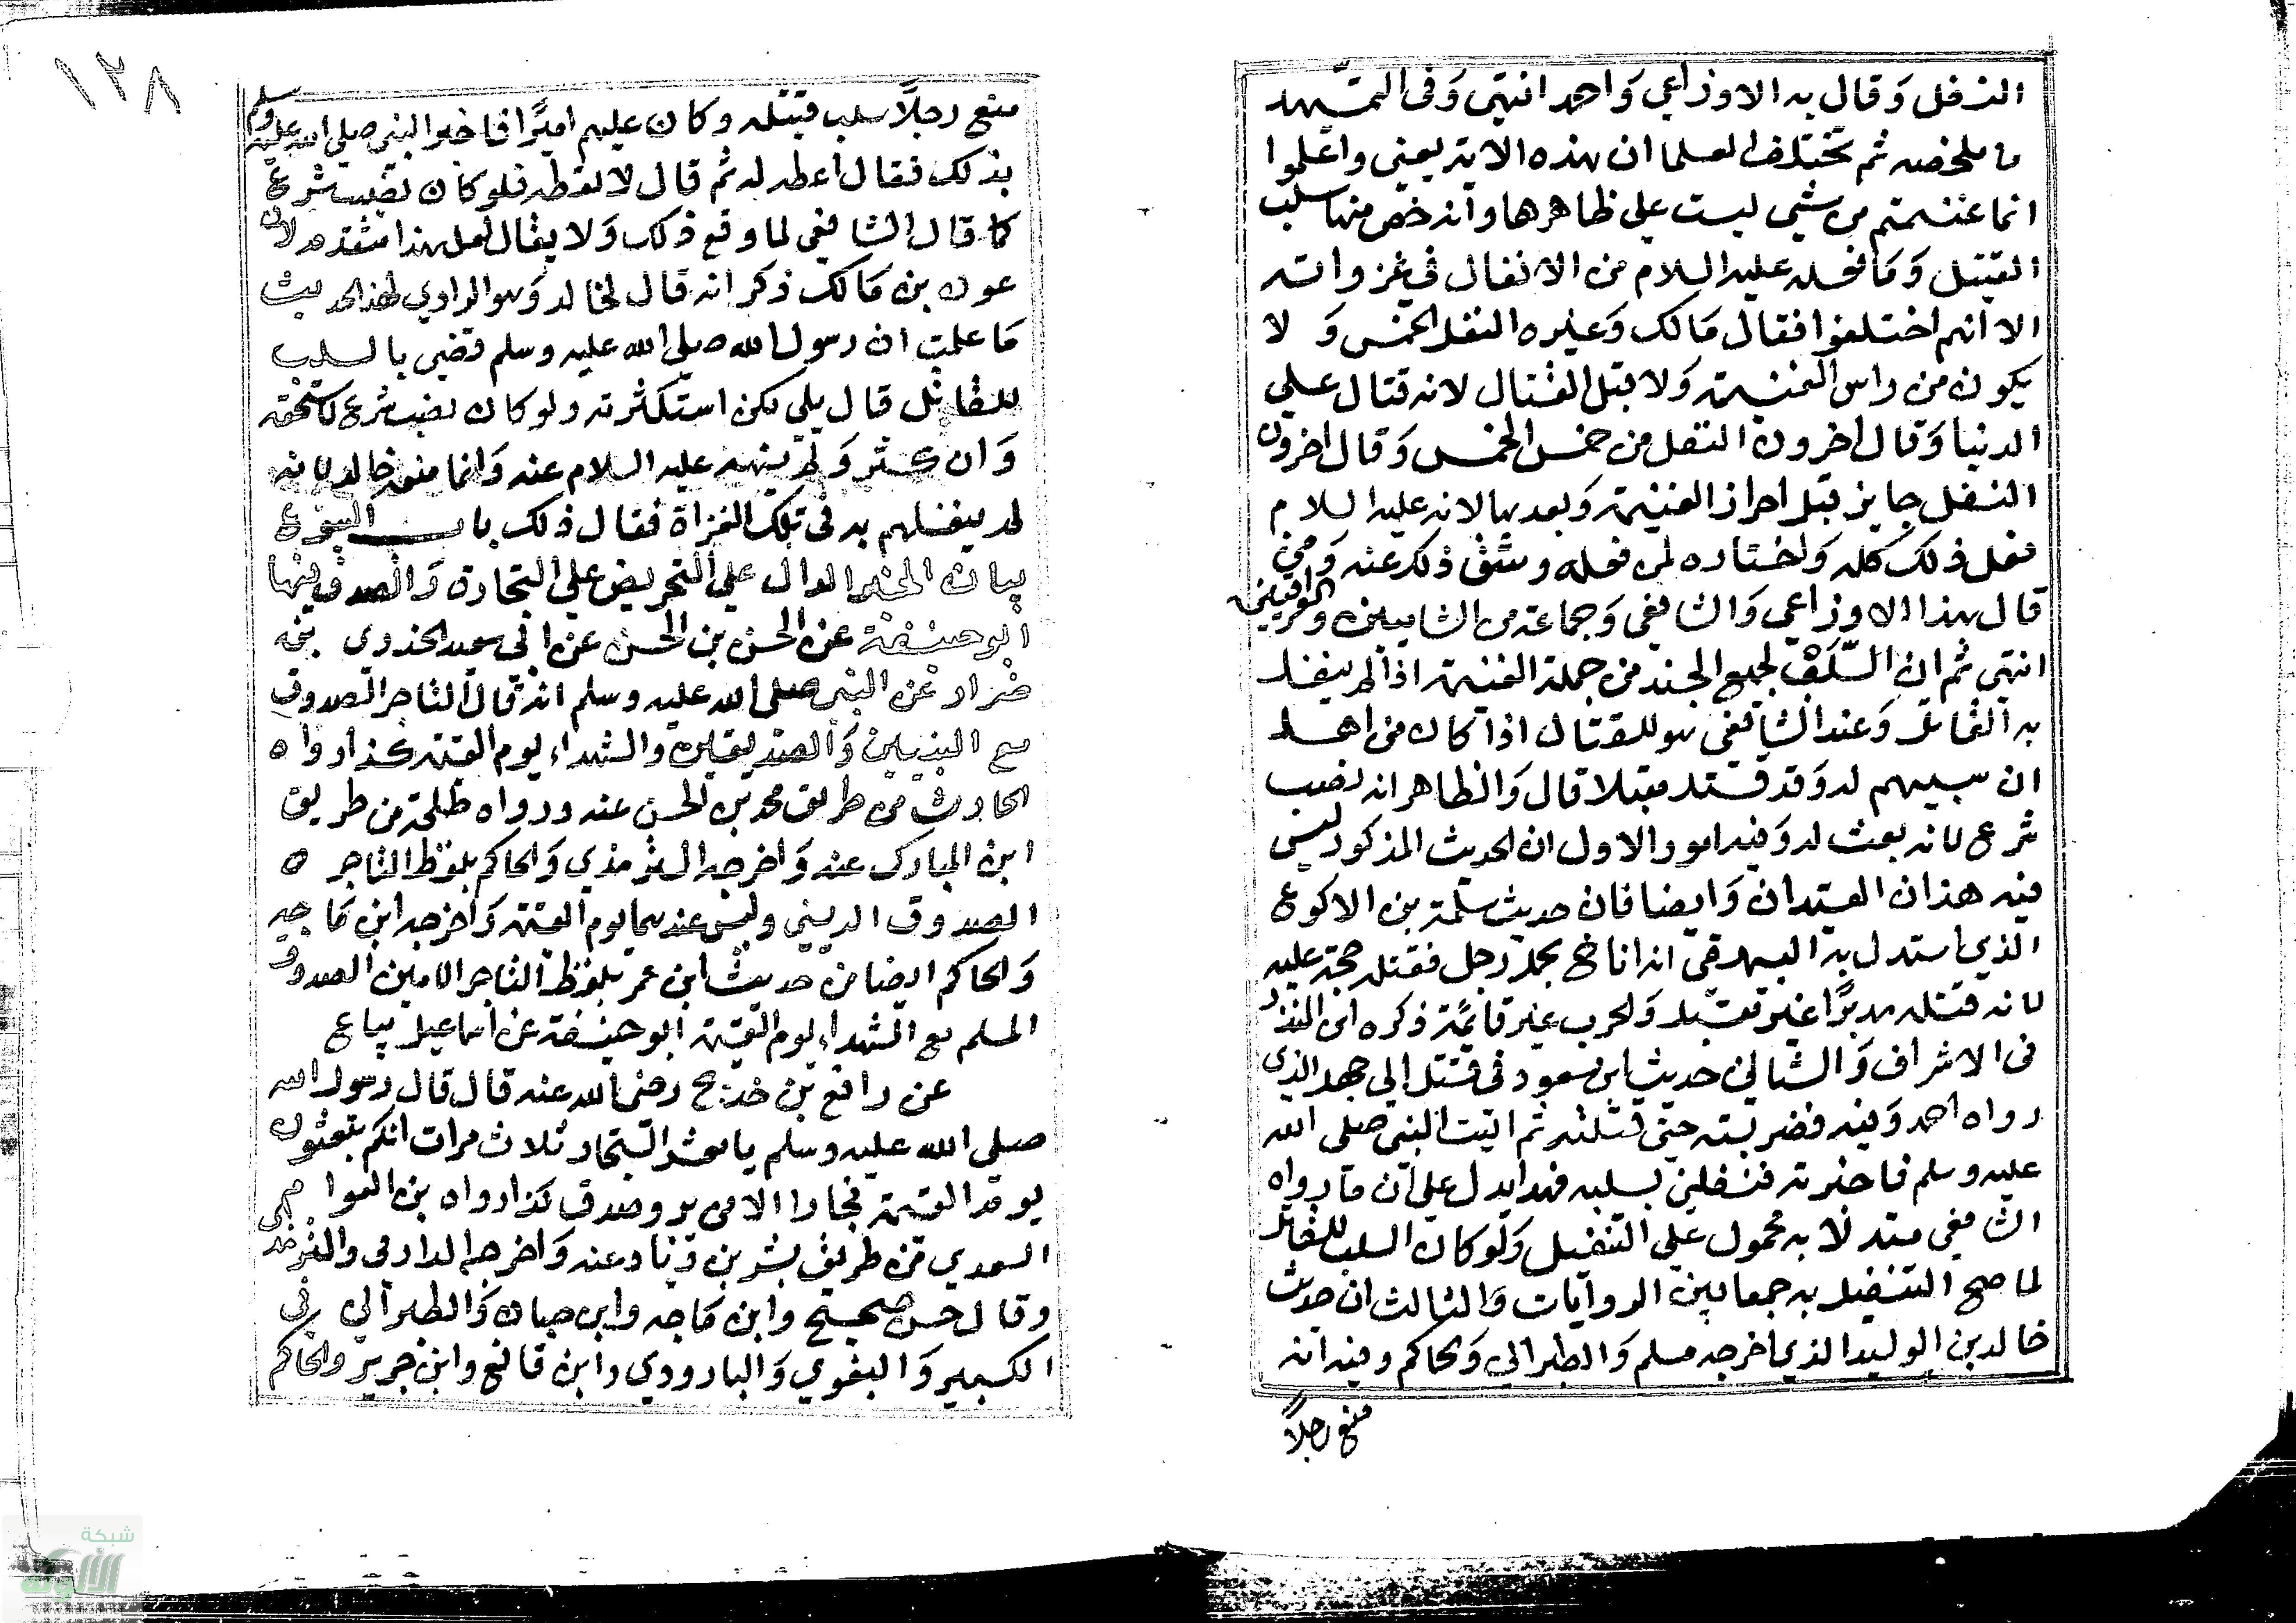 النفل وقال به الاوزاعي واحمد انتهى وفى التمهيد
ما ملخصه ثم تختلف العلما ان هذه الاية يعني واعلموا
انما غنمتم من شي ليست على ظاهرها وانه خص منها سلب
القتيل وما فعله عليه السلام من الانفال في غزواته
الا انهم اختلفوا فقال مالك وغيره النفل الخمس ولا
يكون من راس الغنيمة ولا قبل القتال لانه قتال على
الدنيا وقال اخرون النفل من خمس الخمس وقال اخرون
النفل جايز قبل احراز الغنيمة وبعدها لانه عليه السلام
فعل ذلك كله واختاره لمن فعله وذلك عنه وممن
قال بهذا الاوزاعي والشافعي وجماعة من الشاميين والعراقيين
انتهى ثم ان السلب لجميع الجند من جملة الغنيمة اذا لم ينفل
به القاتل وعند الشافعي هو للقتال اذا كان من اهل
ان سيهم له وقد قتله مقبلا قال والظاهر انه نصب
شرع لانه بعث له وفيه امور الاول ان الحديث المذكور ليس
فيه هذان القيدان وايضا فان حديث سلمة بن الاكوع
الذي استدل به البيهقي انه اناخ بجمل رجل فقتله حجة عليه
لانه قتله مدبرا غير مقبل والحرب غير قائمة ذكره ابن المنذر
فى الاشراف والثاني حديث ابن مسعود فى قتل ابي جهل الذي
رواه احمد وفيه فضربته حتى قتلته ثم اتيت النبي صلى الله
عليه وسلم فاخبرته فنفلني بسلبه فهذا يدل على ان ما رواه
الشافعي مستدلا به محمول على التنفيل ولو كان السلب للقاتل
لما صح التنفيل به جمعا بين الروايات والثالث ان حديث
خالد بن الوليد الذي اخرجه مسلم والطبراني والحاكم وفيه انه
منع رجلاً
١٢٨
منع رجلاً سلب قتيله وكان عليهم اميرًا فاخبر النبي صلى الله عليه وسلم
بذلك فقال اعطه له ثم قال لا تعطه فلو كان نصب شرع
كما قال الشافعي لما وقع ذلك ولا يقال لعل هذا متقدم لان
عون بن مالك ذكر انه قال لخالد وهو الراوي لهذا الحديث
ما علمت ان رسول الله صلى الله عليه وسلم قضى بالسلب
للقاتل قال بلى لكن استكثرته ولو كان نصب شرع لاستحقه
وان كثر ولم ينهه عليه السلام عنه وانما منعه خالد لانه
لم ينفلهم به فى تلك الغزاة فقال ذلك باب البيوع
بيان الخبر الدال على التحريض على التجارة والصدق فيها
ابو حنيفة عن الحسن بن الحسن عن ابى سعيد الخدري
ضرار عن النبي صلى الله عليه وسلم انه قال التاجر الصدوق
مع النبيين والصديقين والشهداء يوم القيمة كذا رواه
الحارث من طريق محمد بن الحسن عنه ورواه طلحة من طريق
ابن المبارك عنه واخرجه الترمذي والحاكم بلفظ التاجر
الصدوق الديني وليس عندهما يوم القيمة واخرجه ابن ماجه
والحاكم ايضا من حديث ابن عمر بلفظ التاجر الامين الصدوق
المسلم مع الشهداء يوم القيمة ابو حنيفة عن اسماعيل بياع
عن رافع بن خديج رضى الله عنه قال قال رسول الله
صلى الله عليه وسلم يا معشر التجار ثلاث مرات انكم تبعثون
يوم القيمة فجارا الا من بر وصدق كذا رواه بن العوام
السعدي من طريق بشر بن زياد عنه واخرجه الدارمى والترمذي
وقال حسن صحيح وابن ماجه وابن حبان والطبراني في
الكبير والبغوي والبارودي وابن قانع وابن جرير والحاكم
شبكة
الألوكة